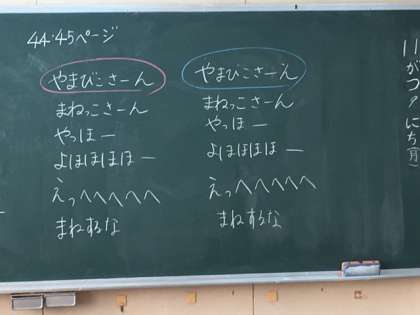 44・45ページ
やまびこさーん
まねっこさーん
やっほー
よほほほほー
えっへへへへへ
まねするな
やまびこさーん
まねっこさーん
やっほー
よほほほほー
えっへへへへへ
まねするな
11がつ1にち(月)